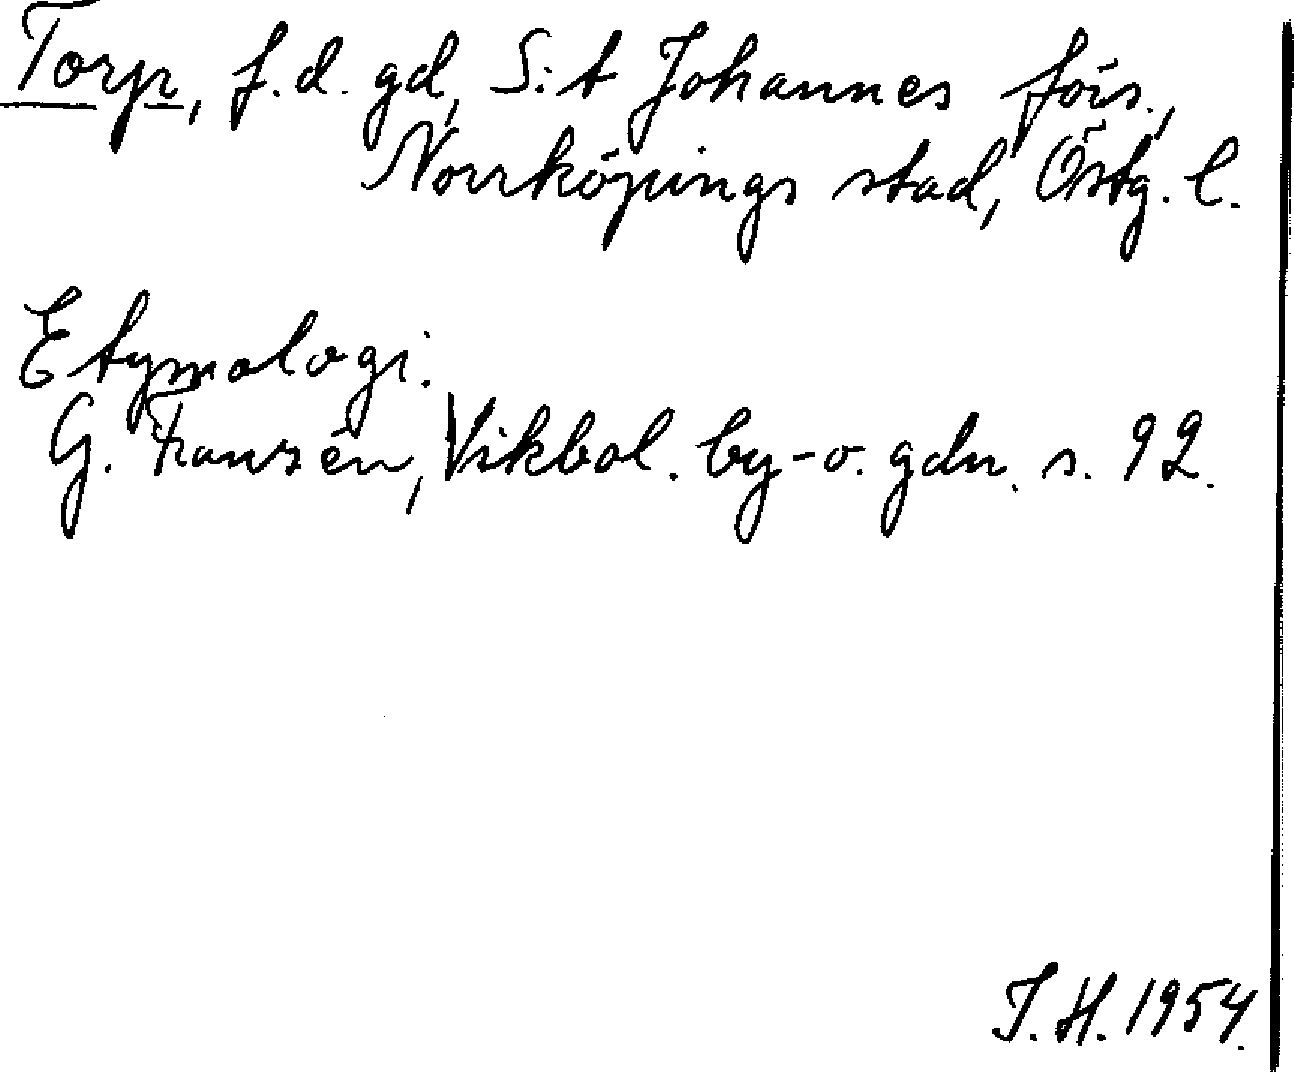 Torp, f.d. gd, S:t Johannes förs.,
Norrköpings stad, Östg. l.
Etymologi.
G. Franzén, Vikbol. by- o. gdn. s. 92.
J.H. 1954.